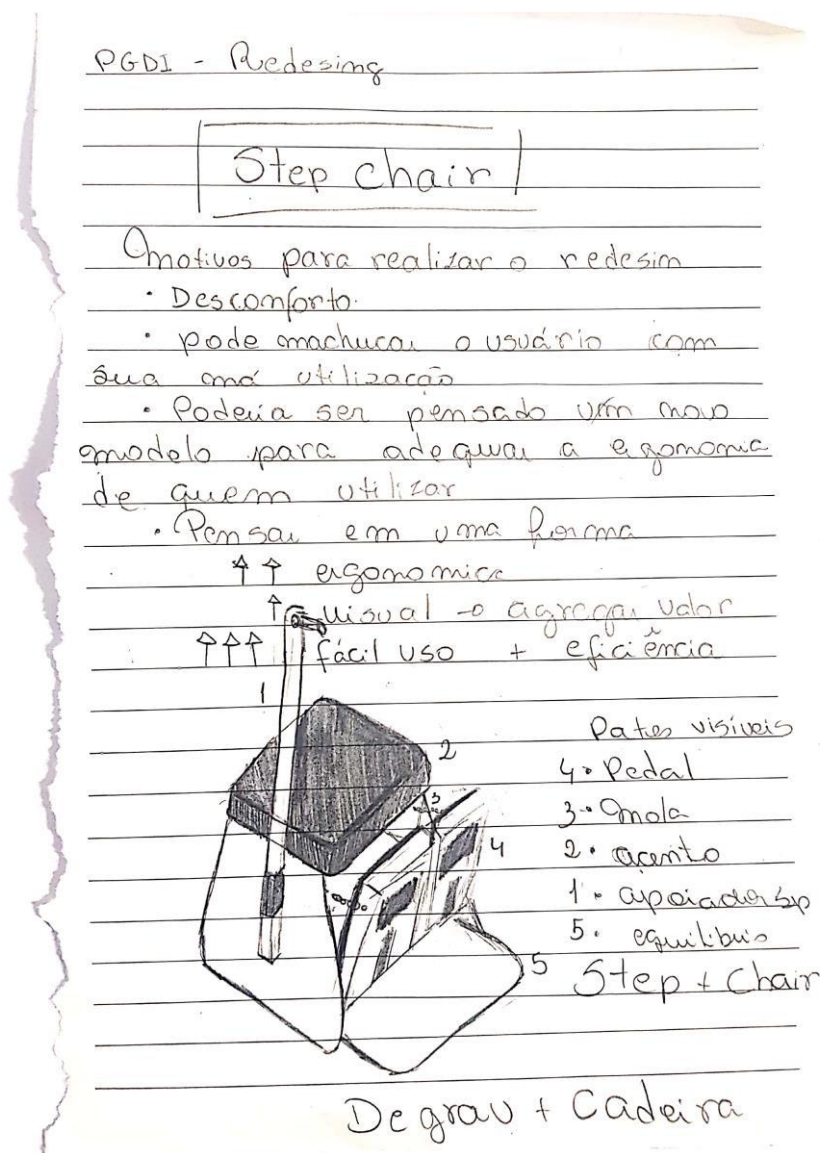 PGDI - Redesing
Step chair
motivos para realizar o redesim
• Desconforto.
• pode machucar o usuário com
sua má utilização
• Poderia ser pensado um novo
modelo para adequar a ergonomia
de quem utilizar
• Pensar em uma forma
↑ ↑ ergonomica
↑ visual → agregar valor
↑↑↑ fácil uso + eficiência
1
2
3
4
5
Pates visíveis
4• Pedal
3• mola
2• acento
1• apoiador sp
5. equilibrio
Step + Chair
Degrau + Cadeira